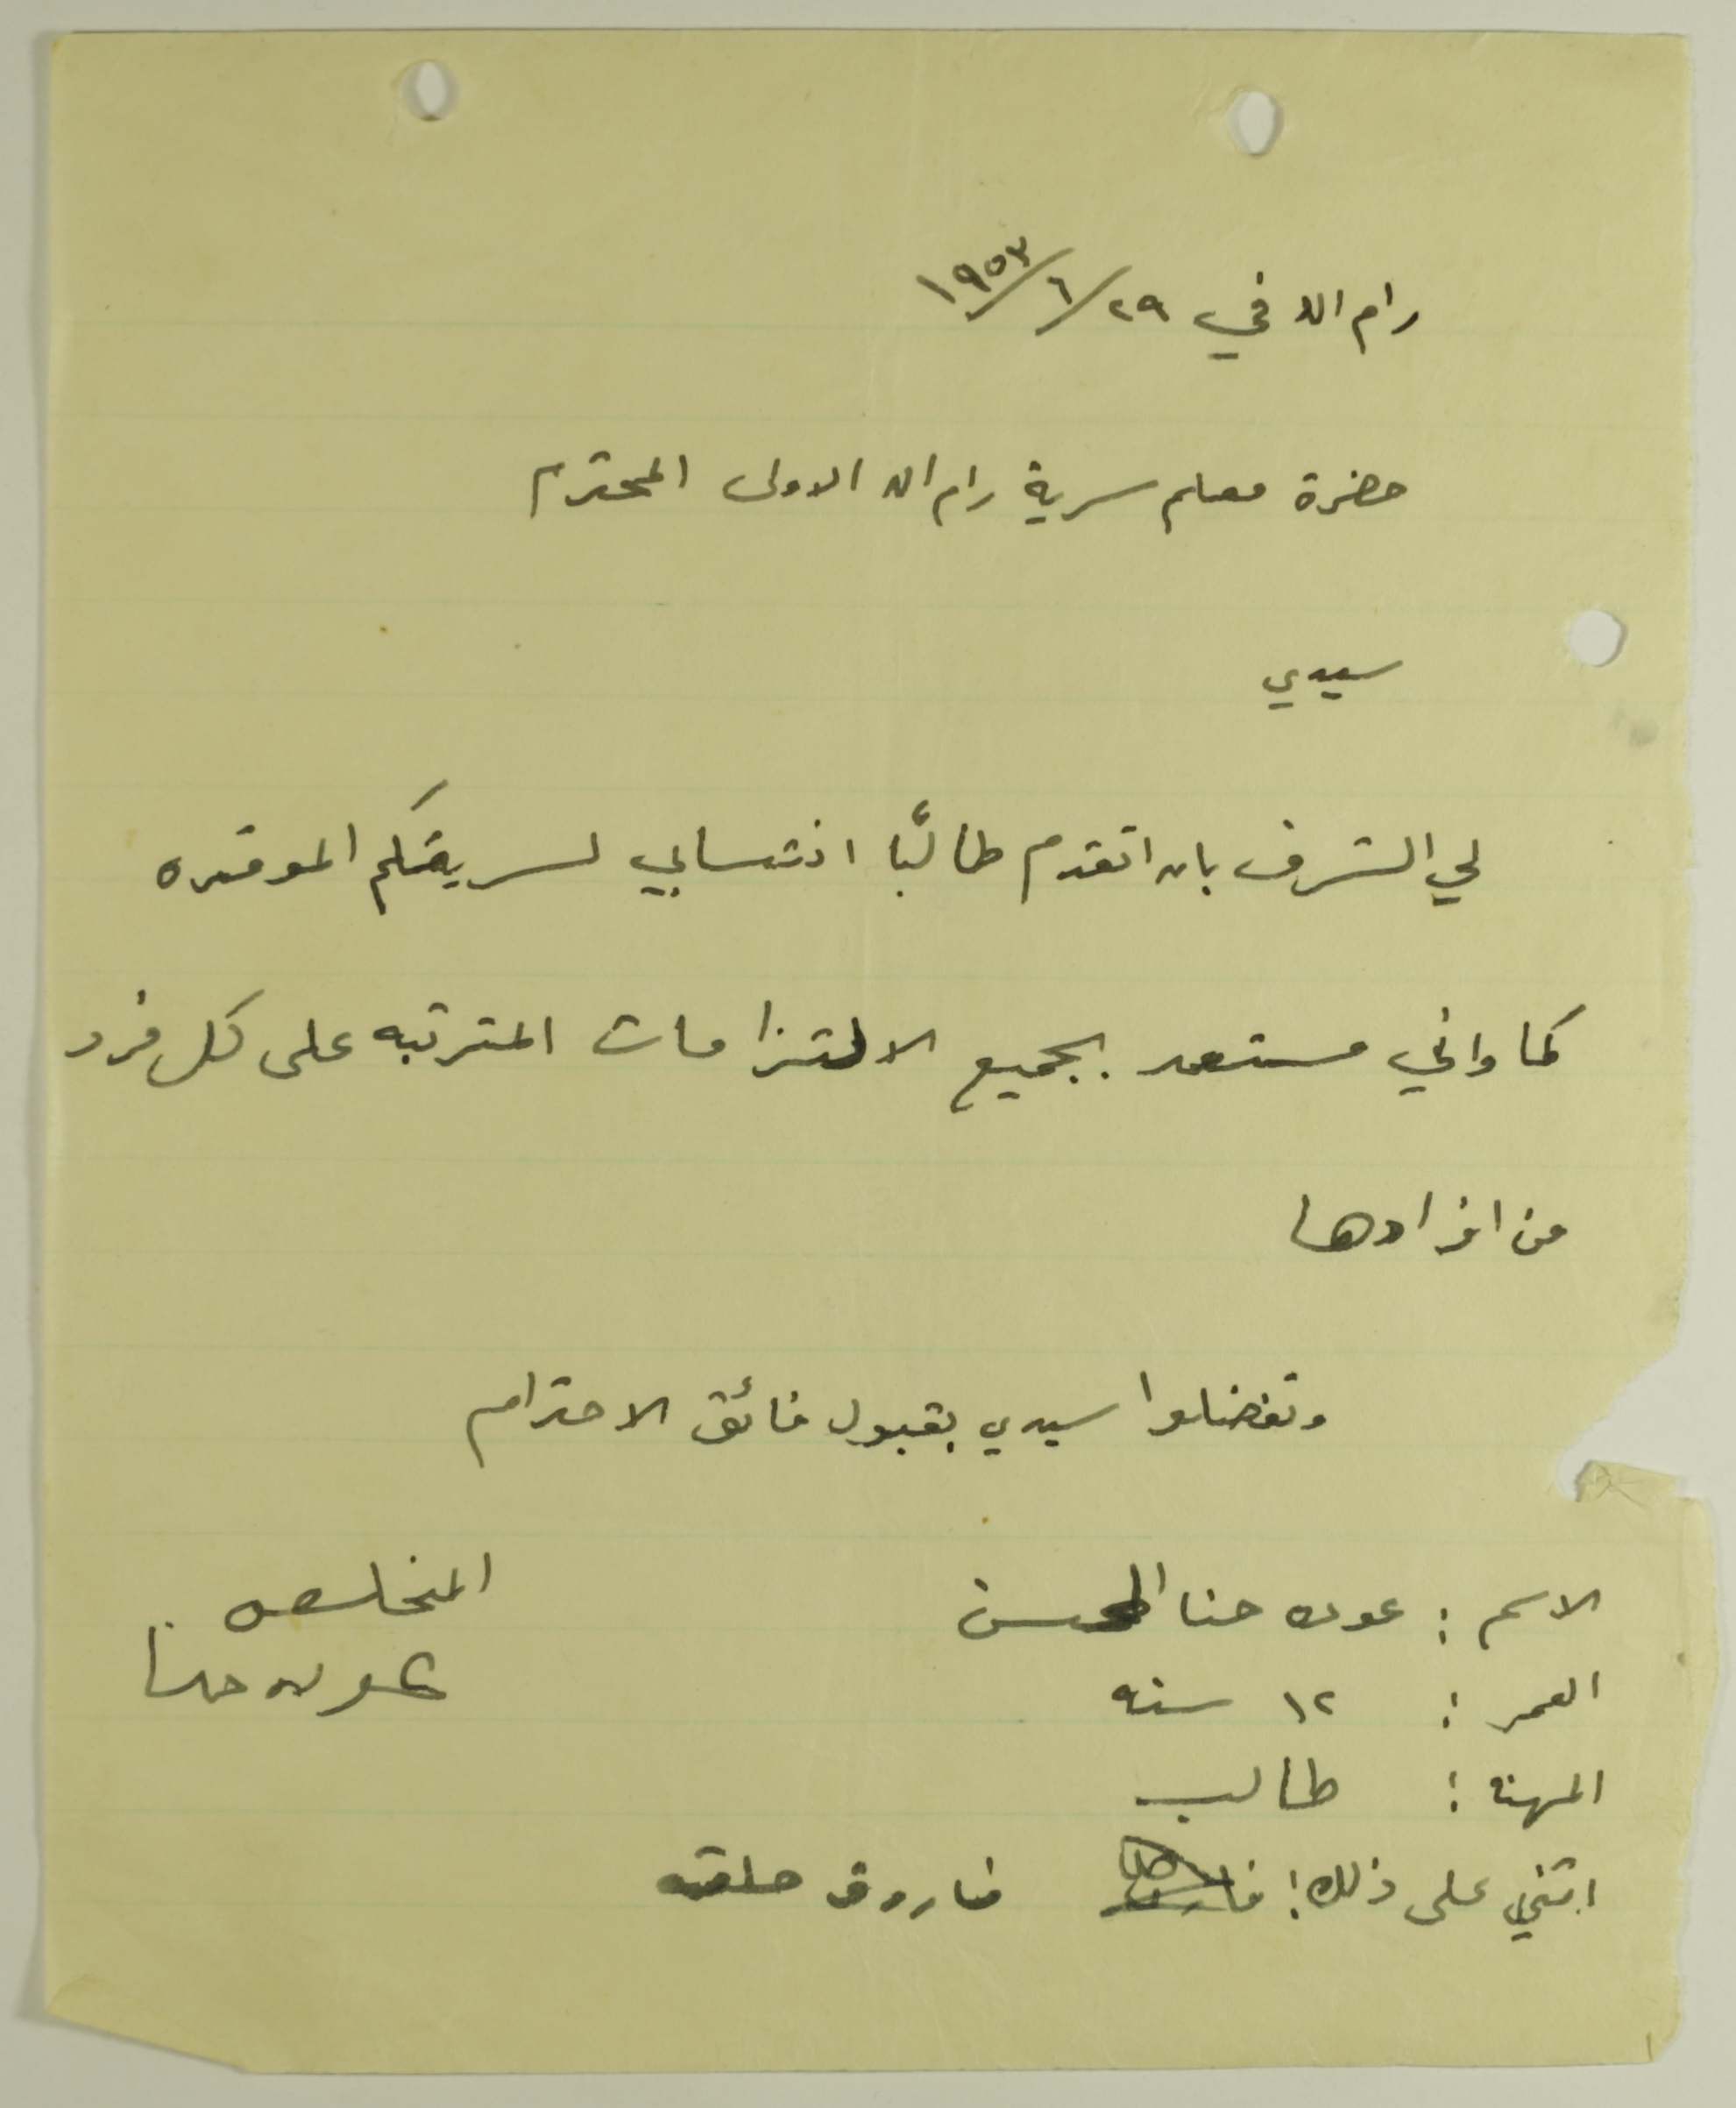 رام الله في ٢٩/٦/١٩٥٣
حضرة معلم سرية رام الله الاولى المحترم
سيدي
لي الشرف بان اتقدم طالبًا انتسابي لسريتكم الموقره
كما واني مستعد بجميع الالتزامات المترتبه على كل فرد
من افرادها
وتفضلوا سيدي بقبول فائق الاحترام
المخلص
عوده حنا
الاسم : عوده حنا الحسن
العمر : ١٢ سنه
المهنه : طالب
اثني على ذلك : فاروق حلقه